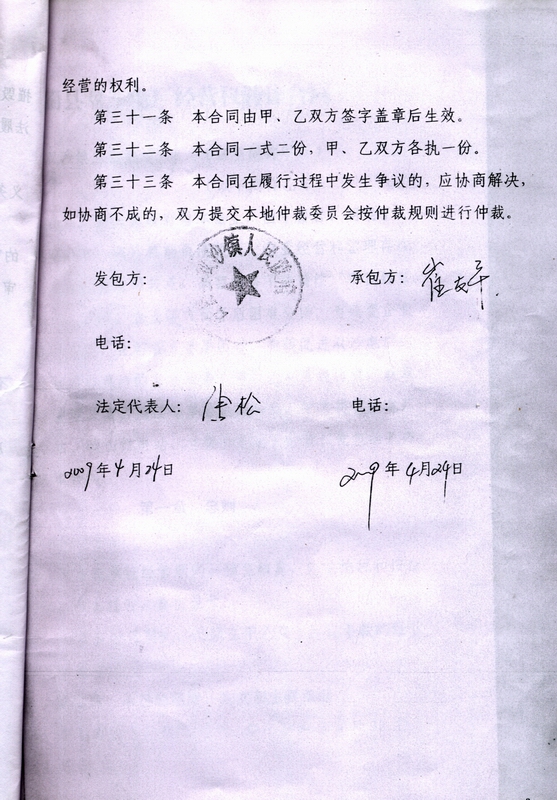 经营的权利。
第三十一条 本合同由甲、乙双方签字盖章后生效。
第三十二条 本合同一式二份，甲、乙双方各执一份。
第三十三条 本合同在履行过程中发生争议的，应协商解决，
如协商不成的，双方提交本地仲裁委员会按仲裁规则进行仲裁。
镇人民政府
发包方：
承包方：崔
电话：
法定代表人：松
电话：
2009年4月24日
2009年4月24日